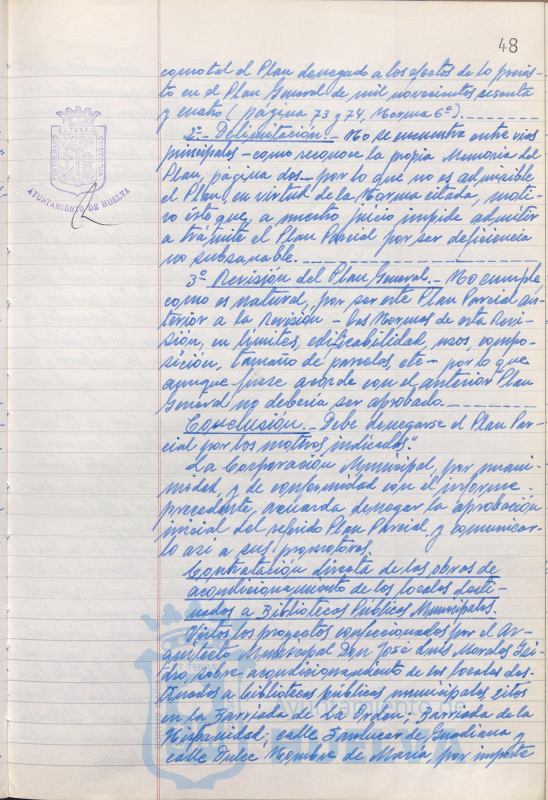 48
como tal el Plan denegado a los efectos de lo previs-
to en el Plan General de mil novecientos sesenta
y cuatro (página 73 y 74, Norma 6ª).
2º.- Delimitación.- No se encuentra entre vias
principales - como reconoce la propia Memoria del
Plan, página dos - por lo que no es admisible
el Plan, en virtud de la Norma citada, moti-
vo éste que, a nuestro juicio impide admitir
a trámite el Plan Parcial por ser deficiencia
no subsanable.
3º Revisión del Plan General.- No cumple
como es natural, por ser este Plan Parcial an-
terior a la revisión - las Normas de esta Revi-
sión, en límites, edificabilidad, usos, compo-
sición, tamaño de parcelas, etc - por lo que
aunque fuese acorde con el anterior Plan
General no debería ser aprobado.
Conclusión.- Debe denegarse el Plan Par-
cial por los motivos indicados".
La Corporación Municipal, por unani-
midad, y de conformidad con el informe
precedente, acuerda denegar la aprobación
inicial del referido Plan Parcial, y comunicar-
lo así a sus promotores.
Contratación directa de las obras de
acondicionamiento de los locales desti-
nados a Bibliotecas Públicas Municipales.
Vistos los proyectos confeccionados por el Ar-
quitecto Municipal Don José Luis Morales
sobre acondicionamiento de los locales des-
tinados a bibliotecas públicas municipales, sitos
en la Barriada de la Orden; Barriada de la
Hispanidad; calle Sanlucar de Guadiana y
calle Dulce Nombre de María, por importe
AYUNTAMIENTO DE HUELVA
Ayuntamiento de
HUELVA